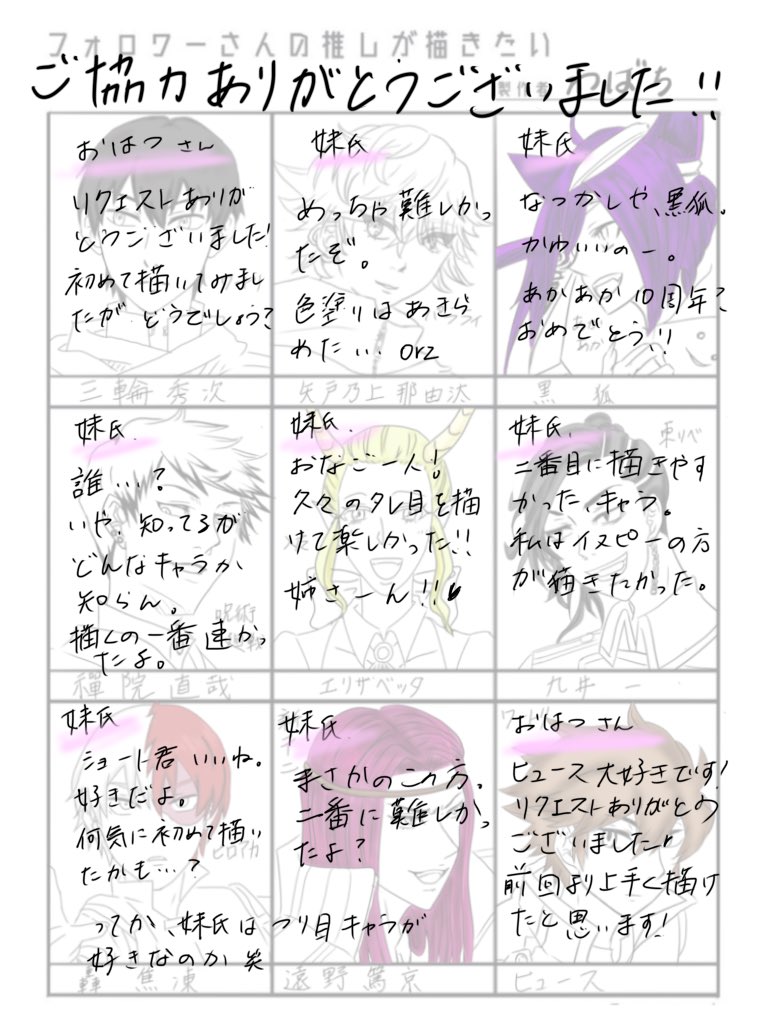 フォロワーさんの推しが描きたい
ご協力ありがとうございました!!
製作者 わばち
おはつさん
リクエストありが
とうございました!
初めて描いてみまし
たが どうでしょう?
三輪秀次
妹氏
めっちゃ難しかっ
たぞ。
色塗りはあきら
めたい… orz
矢戸乃上那由汰
妹氏
なつかしや、黒狐。
かわいいのー。
あかあか10周年?
おめでとう!!
黒 狐
妹氏
誰…?
いや、知ってるが
どんなキャラか
知らん。
描くの一番速かっ
たよ。
禪院直哉
妹氏
おなご一人!
久々のタレ目を描
けて楽しかった!!
姉さーん!!
エリザベッタ
東リベ
妹氏
二番目に描きやす
かった、キャラ。
私はイヌピーの方
が描きたかった。
九井 一
妹氏
ショート君いいね。
好きだよ。
何気に初めて描い
たかも…?
ヒロアカ
轟 焦凍
妹氏
まさかのこの方。
二番に難しかっ
たよ?
遠野篤京
ってか、妹氏はつり目キャラが
好きなのか 笑
おはつさん
ヒュース大好きです!
リクエストありがとう
ございました
前回より上手く描け
たと思います!
ヒュース